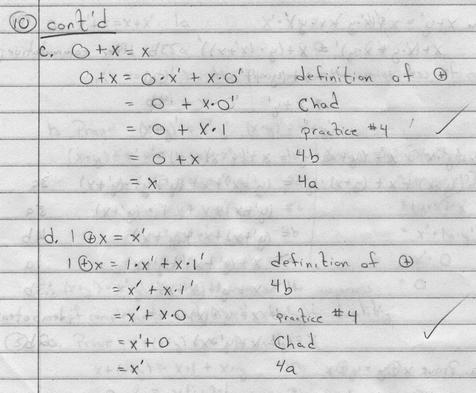 ⑩ cont'd
c. 0 + x = x
0 + x = 0·x' + x·0' definition of ⊕
= 0 + x·0' Chad
= 0 + x·1 practice #4
= 0 + x 4b
= x 4a
d. 1 ⊕ x = x'
1 ⊕ x = 1·x' + x·1' definition of ⊕
= x' + x·1' 4b
= x' + x·0 practice #4
= x' + 0 Chad
= x' 4a